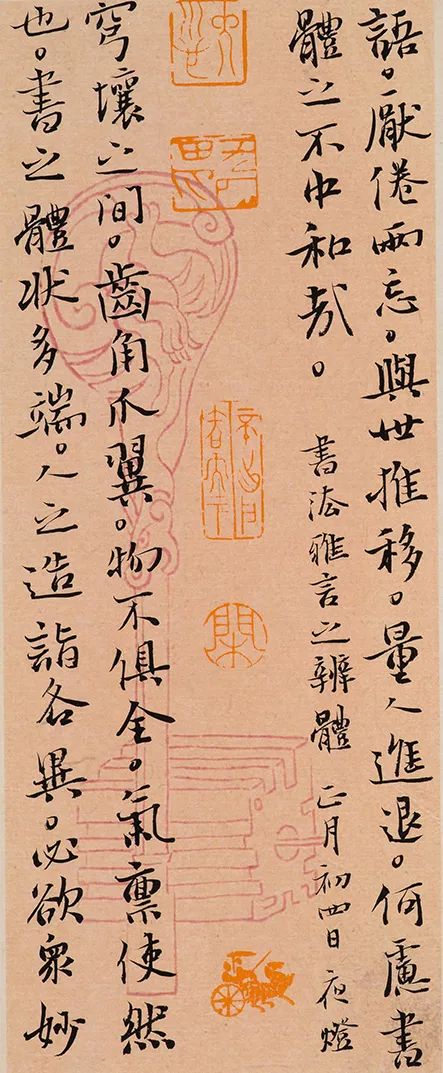 語。厭倦兩忘。與世推移。量人進退。何慮書
體之不中和哉。 書法雅言之辨體 正月初四日 夜燈
閑
穹壤之間。齒角爪翼。物不俱全。氣稟使然
也。書之體狀多端。人之造詣各異。必欲衆妙